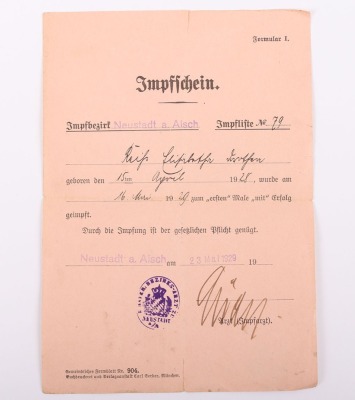 Formular 1.
Impfschein.
Impfbezirk Neustadt a. Aisch. Impfliste № 79
Elisabetha
geboren den 15ten April 1928, wurde am
16. Mai 1929 zum „ersten“ Male „mit“ Erfolg
geimpft.
Durch die Impfung ist der gesetzlichen Pflicht genügt.
Neustadt a. Aisch am 23. Mai 1929 19
NEUSTADT
Arzt (Impfarzt).
Gemeindliches Formblatt Nr. 904.
Buchdruckerei und Verlagsanstalt Carl Gerber, München.